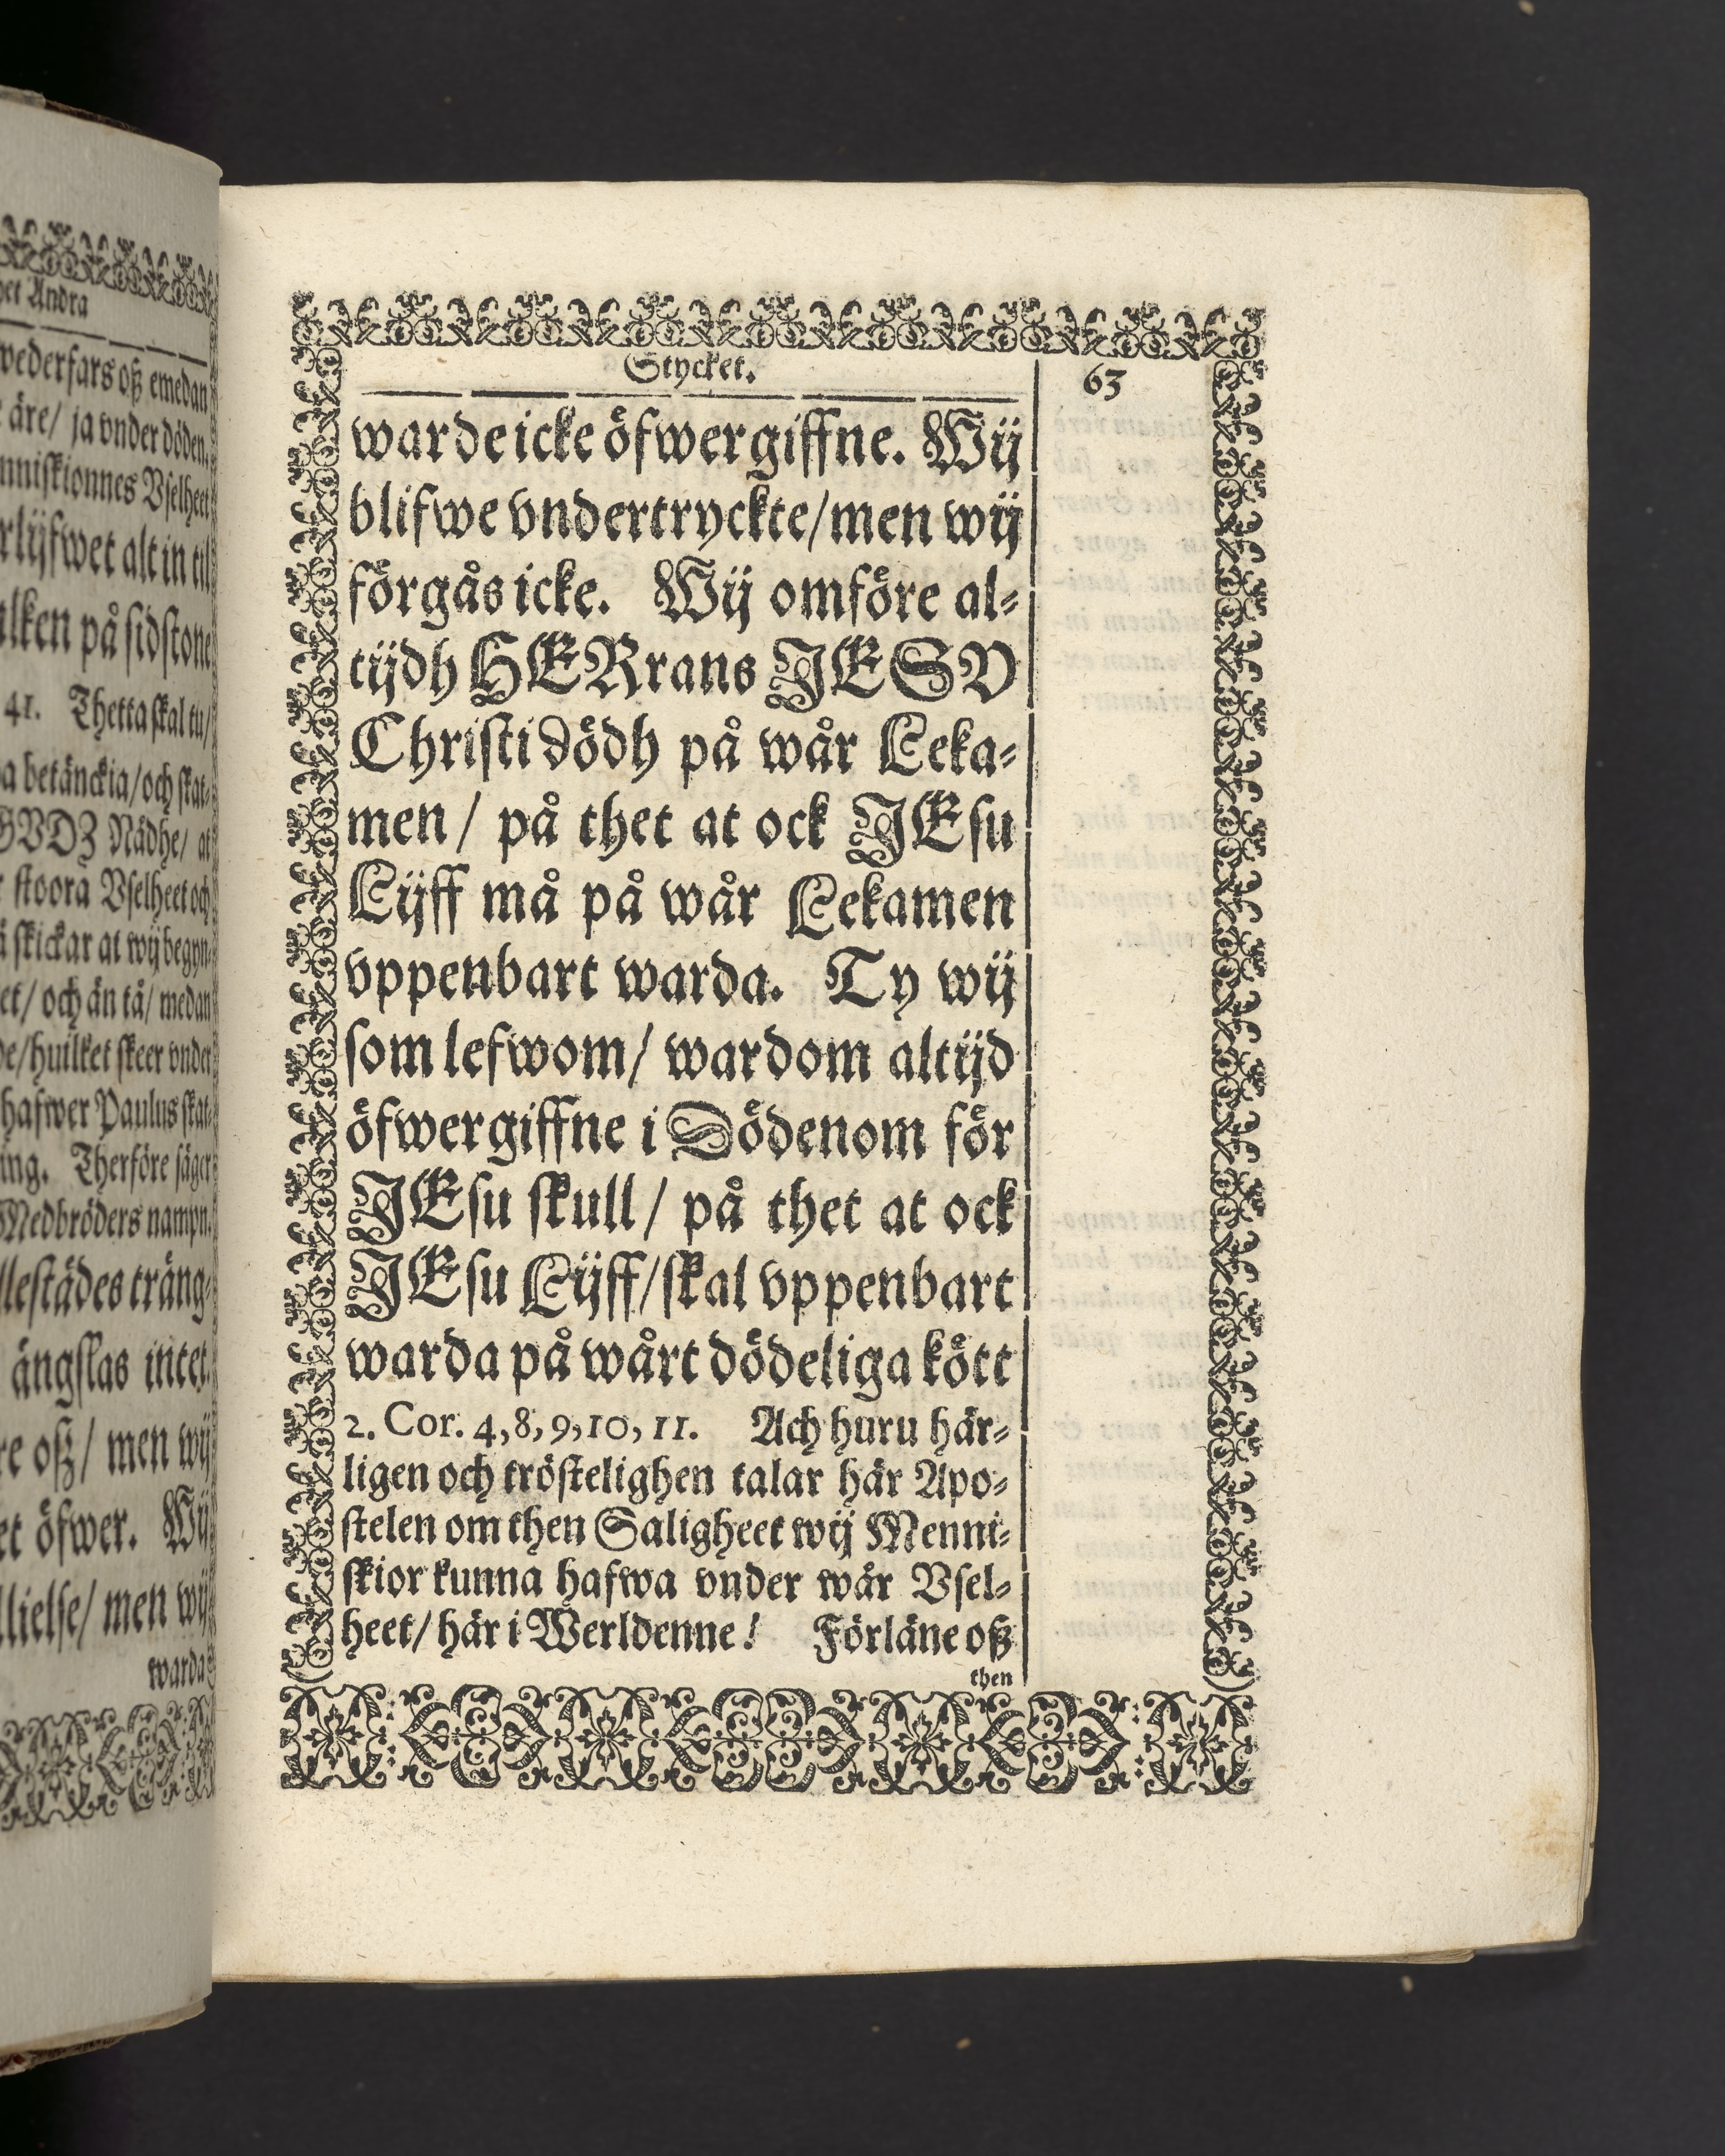 het Andra
wederfars oß emedan
äre/ ja vnder döden.
nniskionnes Vselheet
rlijfwet alt in til
ilken på sidstone
41. Thetta skal tu/
a betänckia/och skat-
GVDZ Nådhe/ at
stoora Vselheet och
skickar at wij begyn-
et/ och än tå/ medan
de/huilket skeer vnder
hafwer Paulus skat-
ing. Therföre säger
Medbröders nampn.
llestädes träng-
ängslas intet.
re oß/ men wij
et öfwer. Wij
llielse/ men wij
warda
Stycket.
63
warde icke öfwergiffne. Wij
blifwe vndertryckte/men wij
förgås icke. Wij omföre al-
tijdh HERrans JESV
Christi dödh på wår Leka-
men/ på thet at ock JEsu
Lijff må på wår Lekamen
vppenbart warda. Ty wij
som lefwom/ wardom altijd
öfwergiffne i Dödenom för
JEsu skull/ på thet at ock
JEsu Lijff/skal vppenbart
warda på wårt dödeliga kött
2. Cor. 4,8,9,10,11. Ach huru här-
ligen och tröstelighen talar här Apo-
stelen om then Saligheet wij Menni-
skior kunna hafwa vnder wår Vsel-
heet/ här i Werldenne! Förläne oß
then